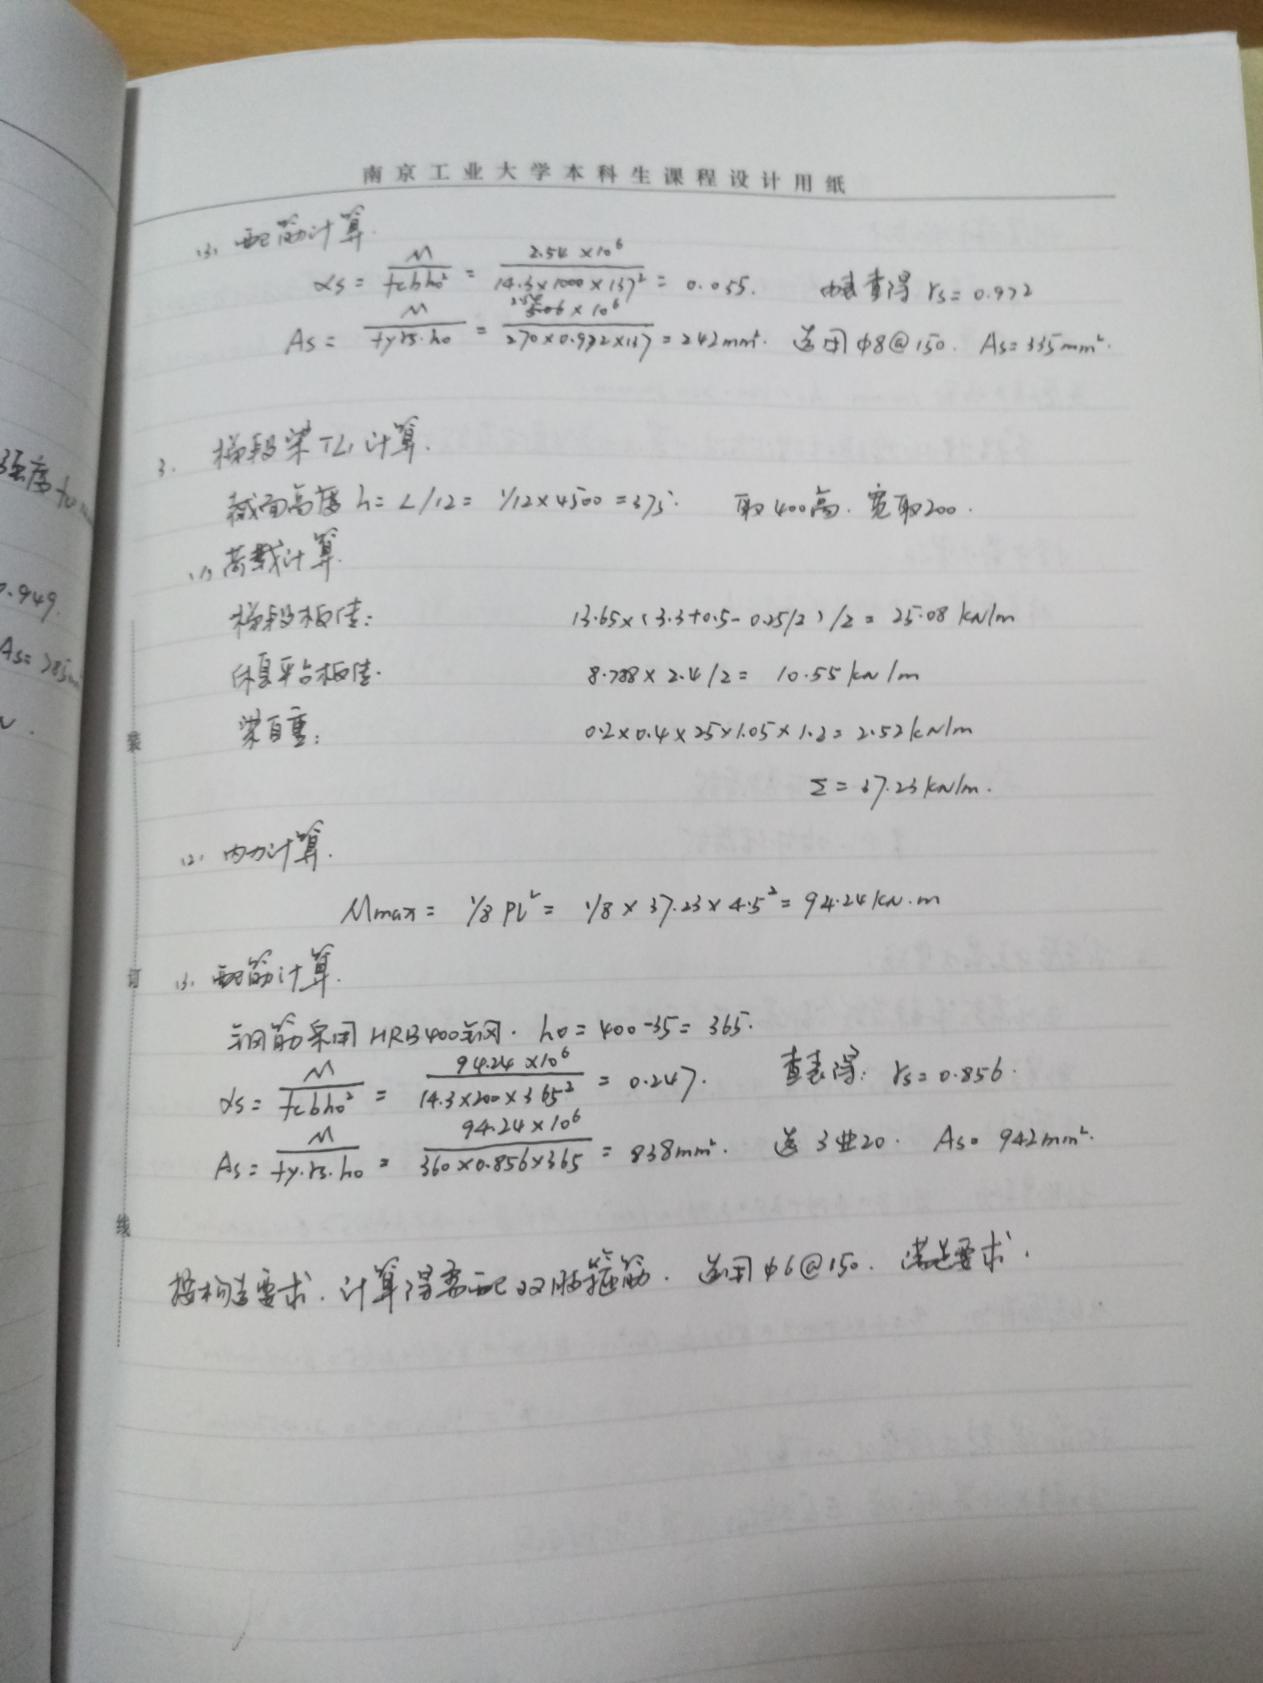 南京工业大学本科生课程设计用纸
(3). 配筋计算.
αs = M/fcbh₀² = 2.54×10⁶/14.3×1000×137² = 0.055. 由表查得 rs = 0.972
As = M/fy·rs·h₀ = 2.54×10⁶/270×0.972×137 = 242mm². 选用 φ8@150. As=335mm².
3. 梯段梁 TL1 计算.
截面高度 h = L/12 = 1/12×4500 = 375. 取400高. 宽取200.
(1) 荷载计算.
梯段板传: 13.65×(3.3+0.5-0.25/2)/2 = 25.08 kN/m
休息平台板传. 8.788×2.4/2 = 10.55 kN/m
梁自重: 0.2×0.4×25×1.05×1.2 = 2.52 kN/m
Σ = 37.23 kN/m.
(2). 内力计算.
Mmax = 1/8 Pl² = 1/8×37.23×4.5² = 94.24 kN·m
(3). 配筋计算.
钢筋采用 HRB400钢. h₀ = 400-35 = 365.
αs = M/fcbh₀² = 94.24×10⁶/14.3×200×365² = 0.247. 查表得: rs = 0.856.
As = M/fy·rs·h₀ = 94.24×10⁶/360×0.856×365 = 838mm². 选 3Φ20. As= 942mm².
按构造要求. 计算得需配双肢箍筋. 选用 φ6@150. 满足要求.
装
订
线
强度 fc
0.949.